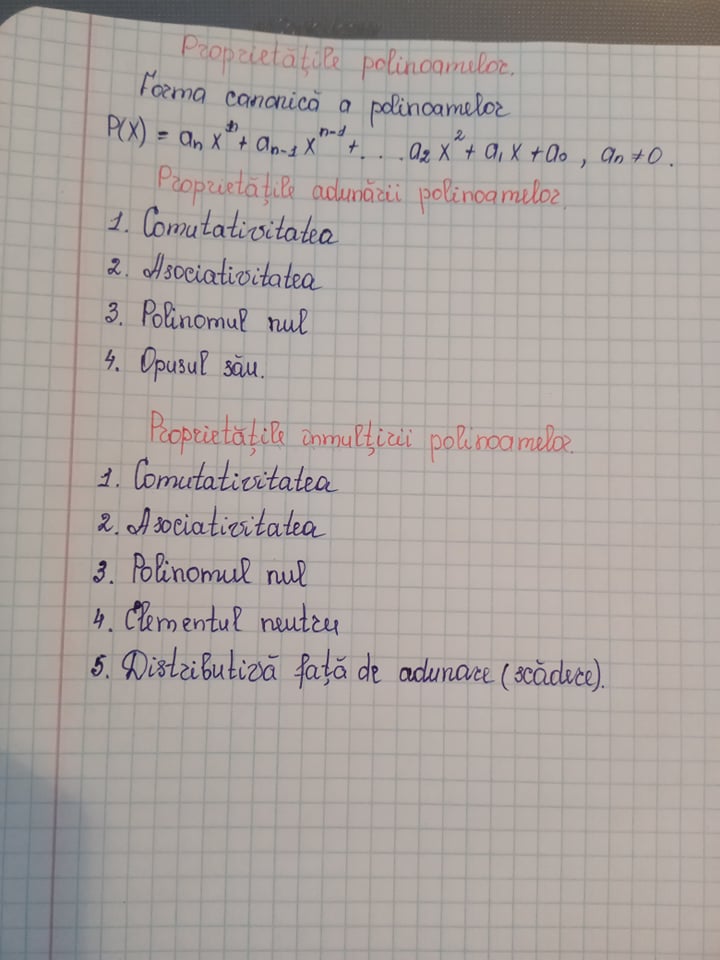 Proprietățile polinoamelor.
Forma canonică a polinoamelor
P(X) = aₙ Xⁿ + aₙ₋₁ Xⁿ⁻¹ + . . . a₂ X² + a₁ X + a₀ , aₙ ≠ 0 .
Proprietățile adunării polinoamelor.
1. Comutativitatea
2. Asociativitatea
3. Polinomul nul
4. Opusul său.
Proprietățile înmulțirii polinoamelor.
1. Comutativitatea
2. Asociativitatea
3. Polinomul nul
4. Elementul neutru
5. Distributivă față de adunare (scădere).